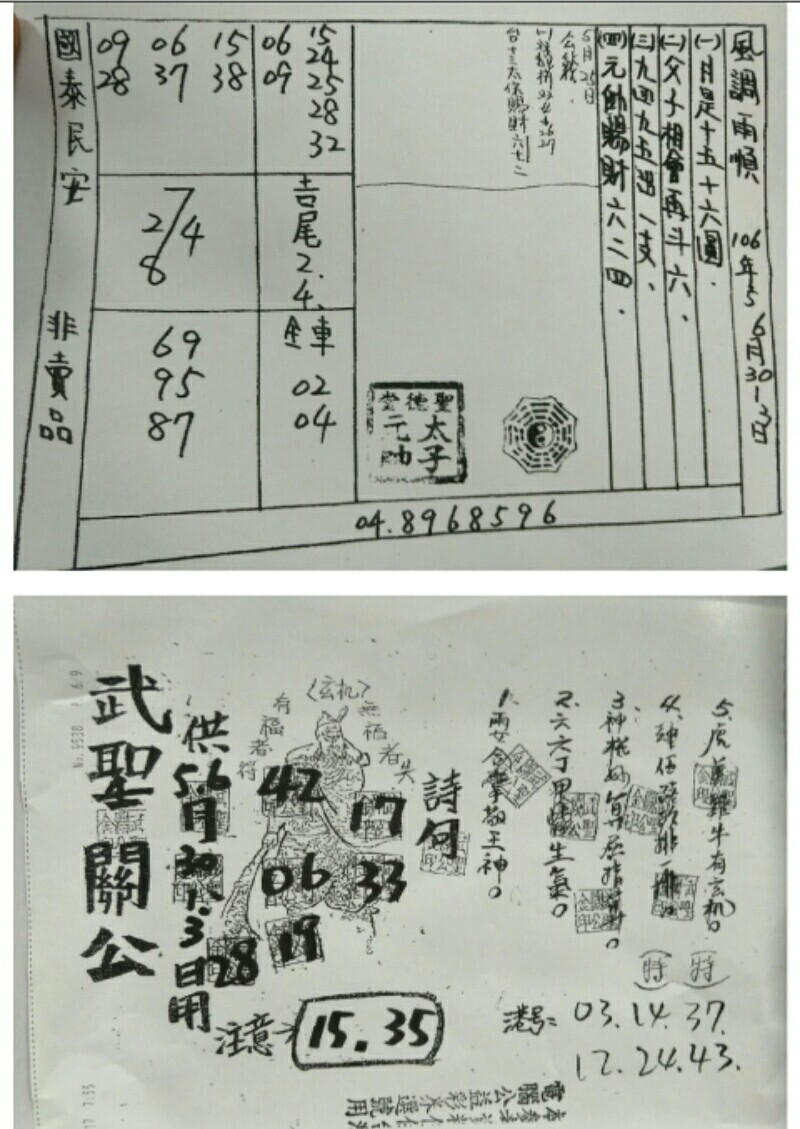 風調雨順 106年5 6月30 1-3日
(一)月是十五十六圓.
(二)父子相會再斗六.
(三)九四九五出一支.
(四)元帥賜財六二四.
6月25日
台十三太保賜財六十二
15
24
25
28
32
06
09
15 38
06 37
09 28
吉尾2.4.
7
2/4
8
全車
02
04
69
95
87
聖德堂
太子元帥
國泰民安 非賣品
04.8968596
武聖關公
供5.6月30 1.3日用
〈玄机〉
有福者得
無福者失
42
17
06
33
19
28
詩句
1.
2.六六丁甲
3.神機妙算
4.
5.虎
有玄机。
(特) (特)
港号: 03. 14. 37.
12. 24. 43.
注意 15. 35
電腦公益彩券選號用